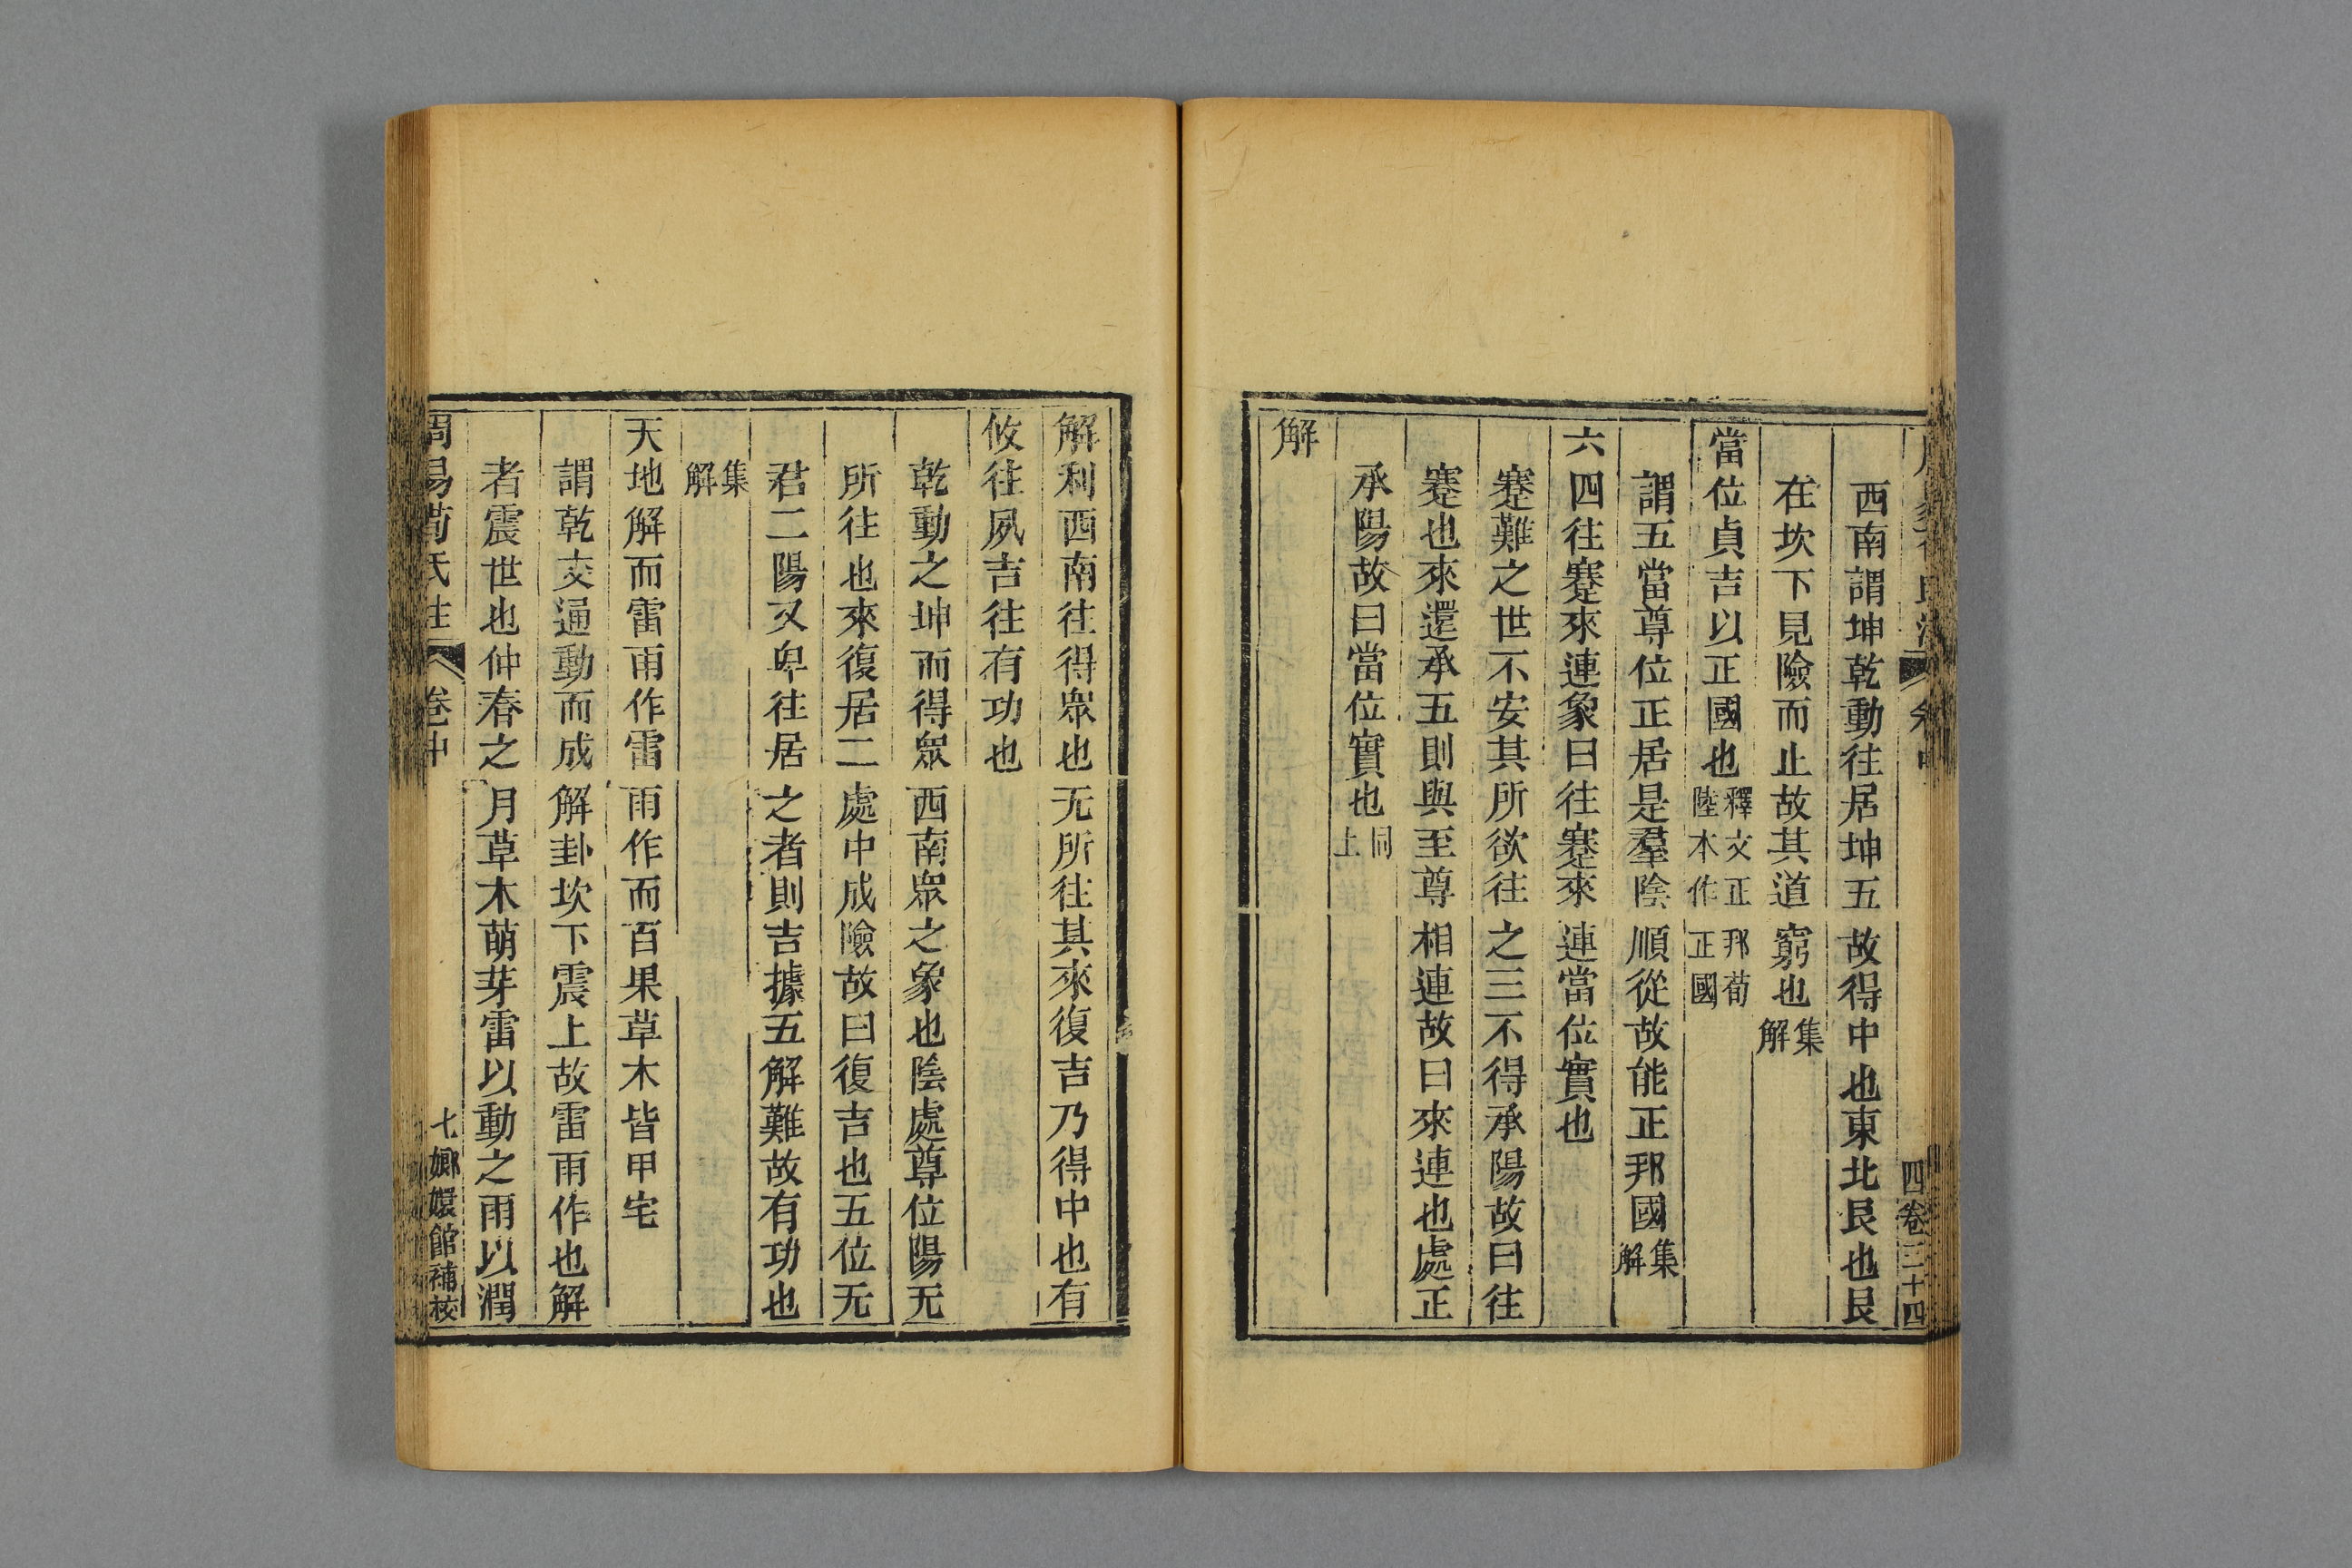 西南謂坤乾動往居坤五故得中也東北艮也艮
在坎下見險而止故其道窮也集解
當位貞吉以正國也釋文正邦荀陸本作正國
謂五當尊位正居是羣陰順從故能正邦國集解
六四往蹇來連象曰往蹇來連當位實也
蹇難之世不安其所欲往之三不得承陽故曰往
蹇也來還承五則與至尊相連故曰來連也處正
承陽故曰當位實也同上
解
四 卷三十四
解利西南往得衆也无所往其來復吉乃得中也有
攸往夙吉往有功也
乾動之坤而得衆西南衆之象也陰處尊位陽无
所往也來復居二處中成險故曰復吉也五位无
君二陽又卑往居之者則吉據五解難故有功也
集解
天地解而雷雨作雷雨作而百果草木皆甲宅
謂乾交通動而成解卦坎下震上故雷雨作也解
者震世也仲春之月草木萌芽雷以動之雨以潤
周易荀氏注 卷中 七 嫏嬛館補校